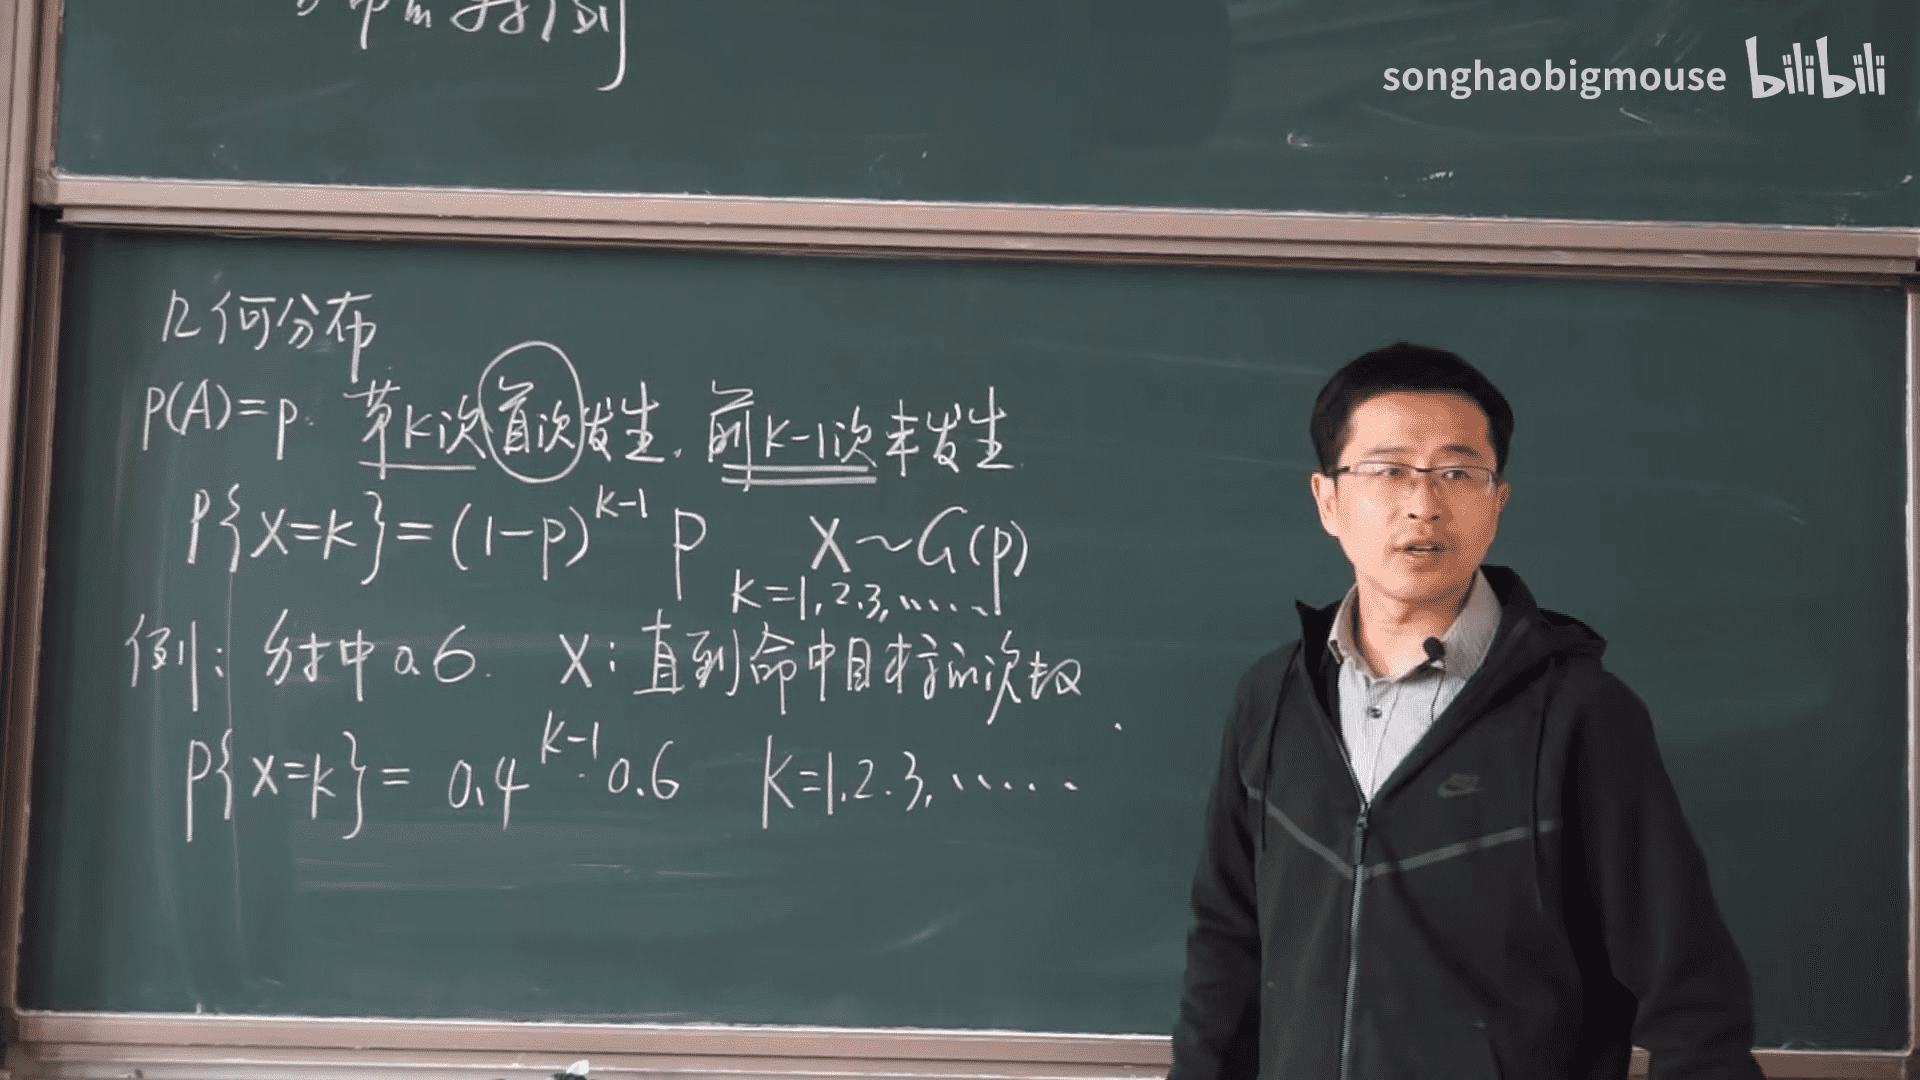 songhaobigmouse bilibili
几何分布
P(A)=p. 第k次首次发生, 前k-1次未发生
P{X=k}=(1-p)^{k-1} p X~G(p)
k=1,2,3,……
例: 射中0.6. X:直到命中目标的次数
P{X=k}=0.4^{k-1}·0.6 k=1.2.3,……